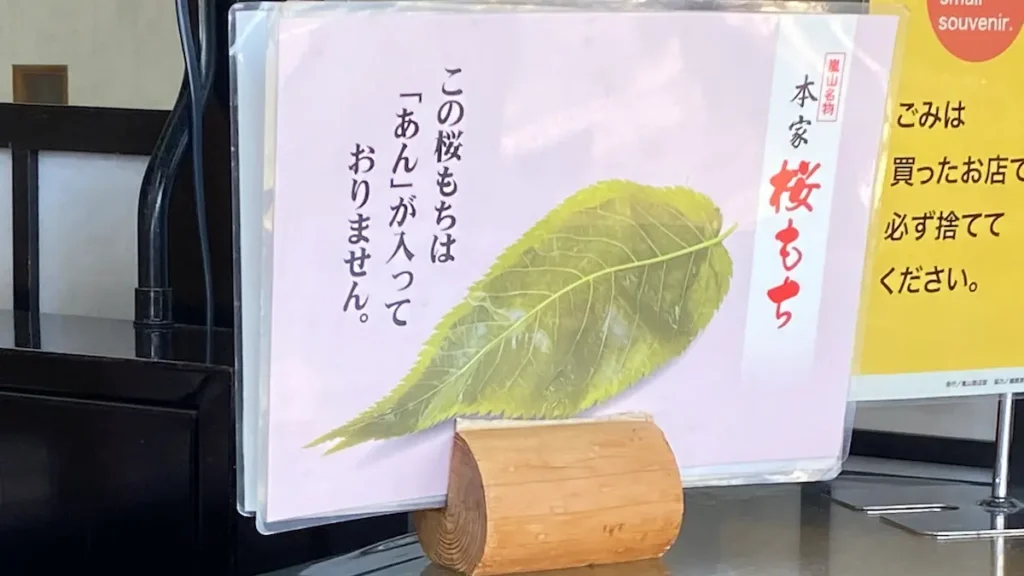 嵐山名物
本家
桜もち
この桜もちは
「あん」が入って
おりません。
small
souvenir.
ごみは
買ったお店で
必ず捨てて
ください。